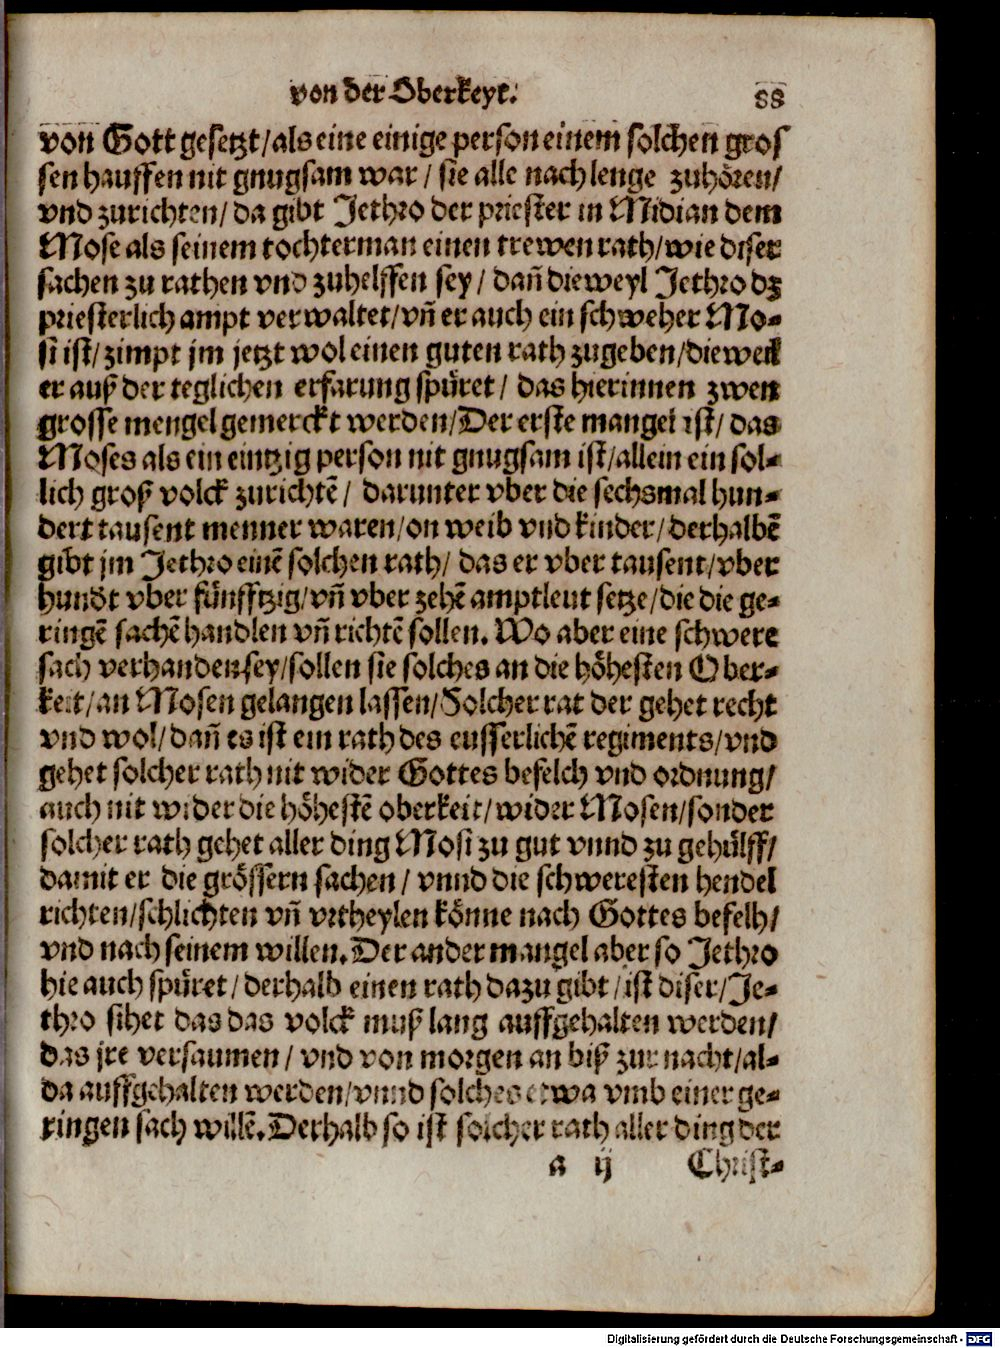 von der Oberkeyt. 88
von Gott gesetzt/als eine einige person einem solchen gros
sen hauffen nit gnugsam war/ sie alle nach lenge zuhören/
vnd zurichten/ da gibt Jethro der priester in Midian dem
Mose als seinem tochterman einen trewen rath/wie diser
sachen zu rathen vnd zuhelffen sey/ dañ dieweyl Jethro dz
priesterlich ampt verwaltet/vñ er auch ein schweher Mo-
si ist/ zimpt jm jetzt wol einen guten rath zugeben/dieweil
er auß der teglichen erfarung spüret/ das hierinnen zwen
grosse mengel gemerckt werden/Der erste mangel ist/ das
Moses als ein eintzig person nit gnugsam ist/allein ein sol-
lich groß volck zurichtē/ darunter vber die sechsmal hun-
dert tausent menner waren/on weib vnd kinder/derhalbē
gibt jm Jethro einē solchen rath/ das er vber tausent/vber
hundt vber fünfftzig/vñ vber zehē amptleut setze/die die ge-
ringē sachē handlen vñ richtē sollen. Wo aber eine schwere
sach verhanden sey/sollen sie solches an die höhesten Ober-
keit/an Mosen gelangen lassen/Solcher rat der gehet recht
vnd wol/dañ es ist ein rath des eusserlichē regiments/vnd
gehet solcher rath nit wider Gottes befelch vnd ordnung/
auch nit wider die höhestē oberkeit/wider Mosen/sonder
solcher rath gehet aller ding Mosi zu gut vnnd zu gehülff/
damit er die grössern sachen/ vnnd die schweresten hendel
richten/schlichten vñ vrtheylen könne nach Gottes befelh/
vnd nach seinem willen. Der ander mangel aber so Jethro
hie auch spüret/ derhalb einen rath dazu gibt/ist diser/Je-
thro sihet das das volck muß lang auffgehalten werden/
das jre versaumen/ vnd von morgen an biß zur nacht/al-
da auffgehalten werden/vnnd solches etwa vmb einer ge-
ringen sach willē. Derhalb so ist solcher rath aller ding der
a ij Christ-
Digitalisierung gefördert durch die Deutsche Forschungsgemeinschaft - DFG